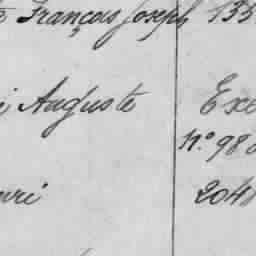 François Joseph 135
Auguste Exe
N.º 98
204